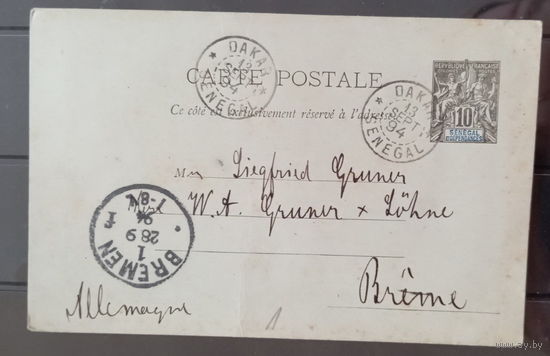 DAKAR
13
SEPT
94
SENEGAL
CARTE POSTALE
Ce côté est exclusivement réservé à l'adresse
DAKAR
13
SEPT
94
SENEGAL
RÉPUBLIQUE FRANÇAISE
POSTES
10
SÉNÉGAL
ET DÉPENDANCES
M Siegfried Gruner
W. A. Gruner & Söhne
Brême
Allemagne
BREMEN
1
28 9
94
7-8 N
shop.ay.by